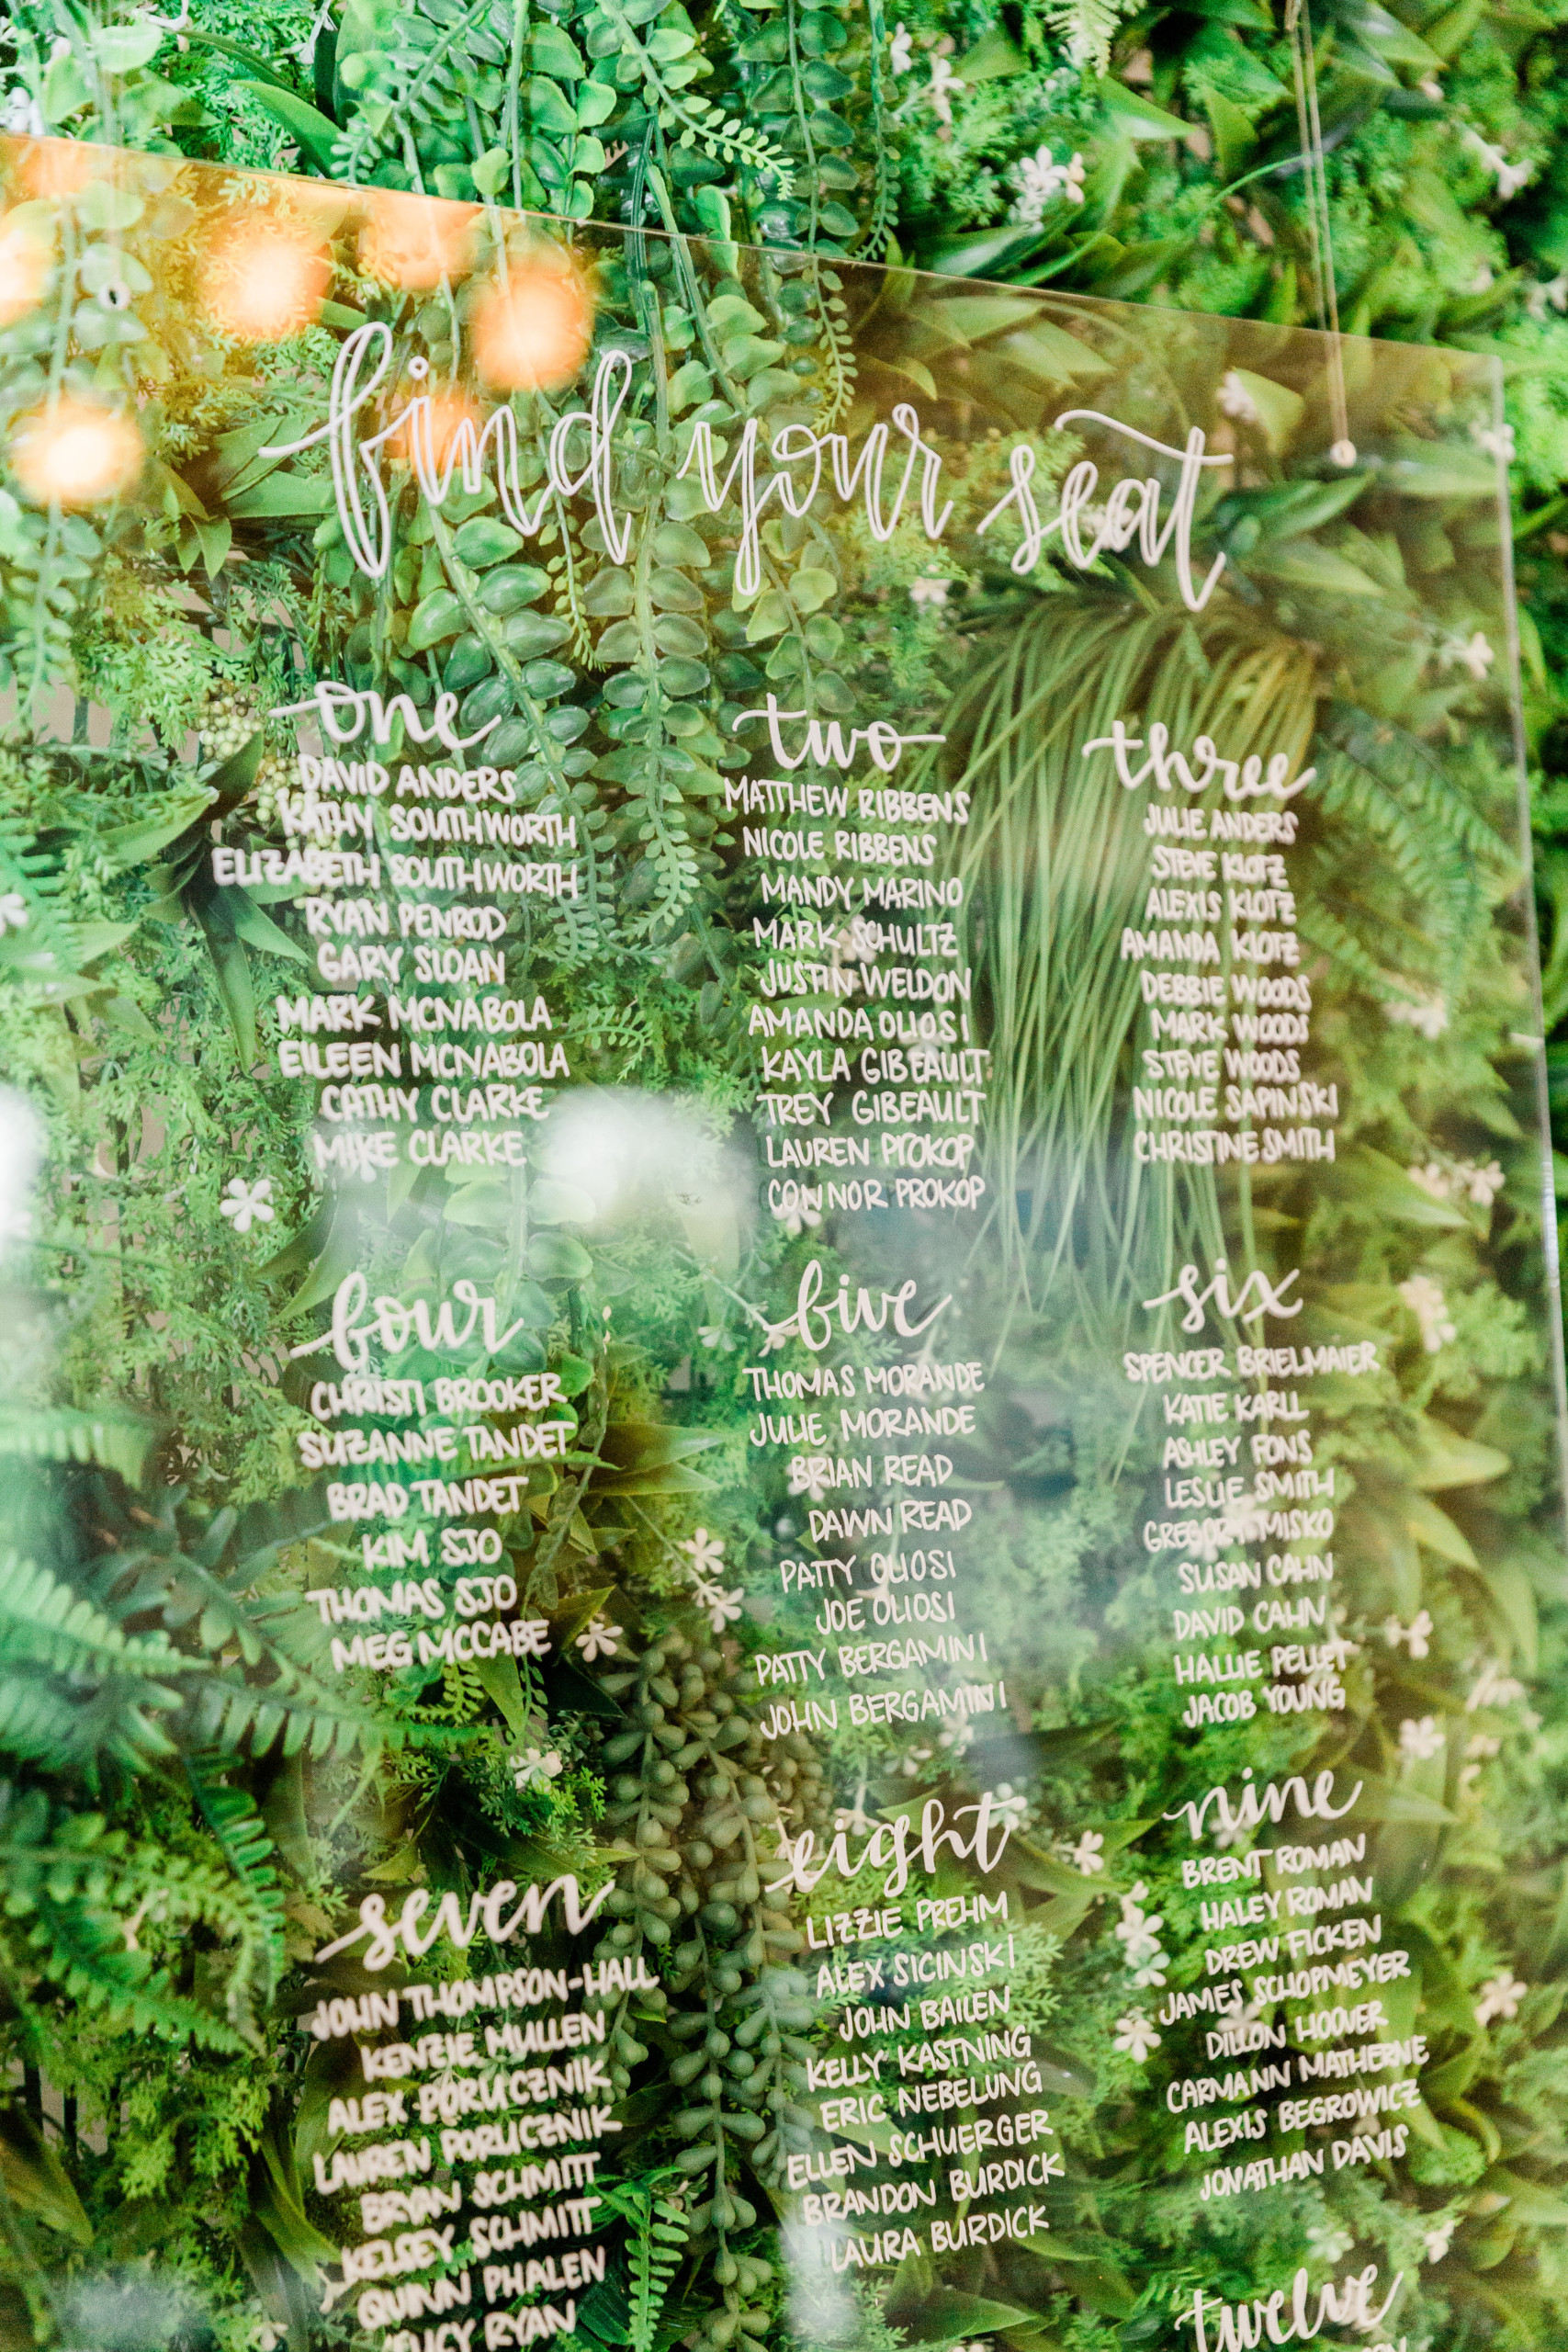 find your seat
one
DAVID ANDERS
KATHY SOUTHWORTH
ELIZABETH SOUTHWORTH
RYAN PENROD
GARY SLOAN
MARK MCNABOLA
EILEEN MCNABOLA
CATHY CLARKE
MIKE CLARKE
two
MATTHEW RIBBENS
NICOLE RIBBENS
MANDY MARINO
MARK SCHULTZ
JUSTIN WELDON
AMANDA OLIOSI
KAYLA GIBEAULT
TREY GIBEAULT
LAUREN PROKOP
CONNOR PROKOP
three
JULIE ANDERS
STEVE KLOTZ
ALEXIS KLOTZ
AMANDA KLOTZ
DEBBIE WOODS
MARK WOODS
STEVE WOODS
NICOLE SAPINSKI
CHRISTINE SMITH
four
CHRISTI BROOKER
SUZANNE TANDET
BRAD TANDET
KIM SJO
THOMAS SJO
MEG MCCABE
five
THOMAS MORANDE
JULIE MORANDE
BRIAN READ
DAWN READ
PATTY OLIOSI
JOE OLIOSI
PATTY BERGAMINI
JOHN BERGAMINI
six
SPENCER BRIELMAIER
KATIE KARLL
ASHLEY FONS
LESLIE SMITH
GREGORY MISKO
SUSAN CAHN
DAVID CAHN
HALLIE PELLET
JACOB YOUNG
seven
JOHN THOMPSON-HALL
KENZIE MULLEN
ALEX PORUCZNIK
LAUREN PORUCZNIK
BRYAN SCHMITT
KELSEY SCHMITT
QUINN PHALEN
RYAN
eight
LIZZIE PREHM
ALEX SICINSKI
JOHN BAILEN
KELLY KASTNING
ERIC NEBELUNG
ELLEN SCHUERGER
BRANDON BURDICK
LAURA BURDICK
nine
BRENT ROMAN
HALEY ROMAN
DREW FICKEN
JAMES SCHOPMEYER
DILLON HOOVER
CARMANN MATHERNE
ALEXIS BEGROWICZ
JONATHAN DAVIS
twelve